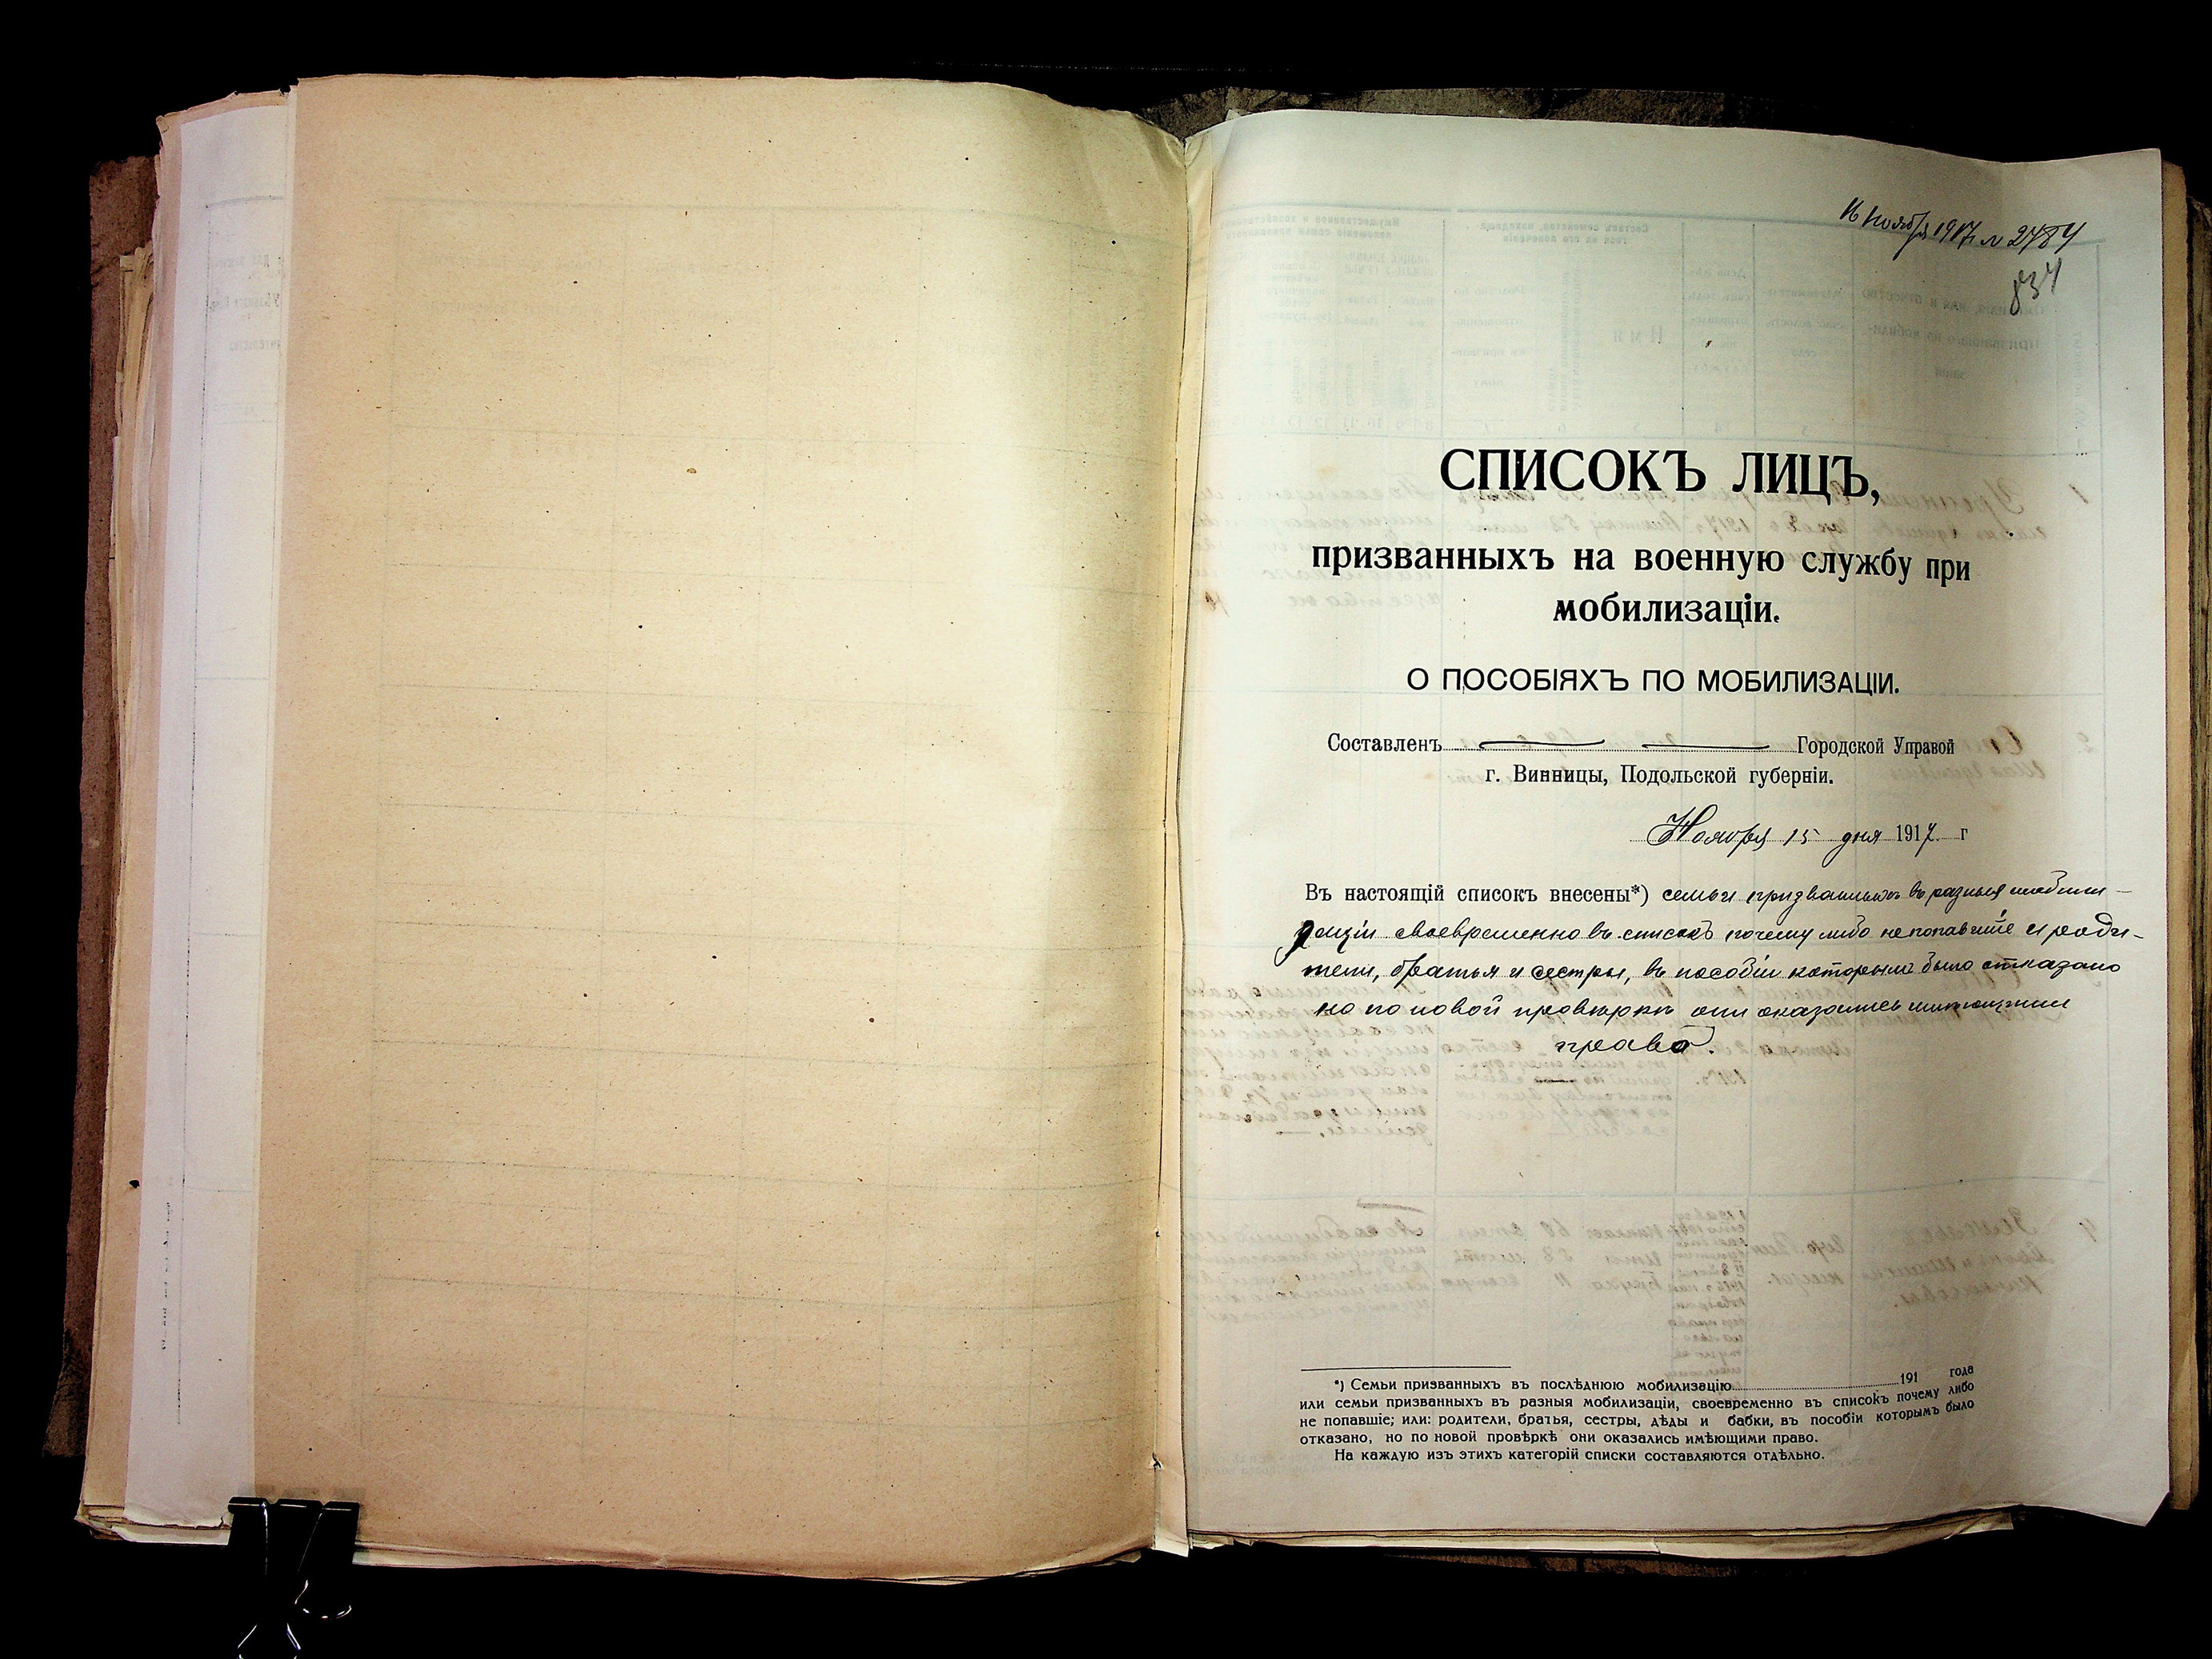 16 Ноября 1917 г № 2484
834
СПИСОКЪ ЛИЦЪ,
призванныхъ на военную службу при
мобилизаціи.
О ПОСОБІЯХЪ ПО МОБИЛИЗАЦІИ.
Составленъ Городской Управой
г. Винницы, Подольской губерніи.
Ноября 15 дня 1917 г
Въ настоящій списокъ внесены*) семьи призванныхъ въ разныя мобили-
заціи своевременно въ списокъ почему либо не попавшіе и роди-
тели, братья и сестры, въ пособіи которымъ было отказано
но по новой провѣркѣ они оказались имѣющими
право.
*) Семьи призванныхъ въ послѣднюю мобилизацію 191 года
или семьи призванныхъ въ разныя мобилизаціи, своевременно въ списокъ почему либо
не попавшіе; или: родители, братья, сестры, дѣды и бабки, въ пособіи которымъ было
отказано, но по новой провѣркѣ они оказались имѣющими право.
На каждую изъ этихъ категорій списки составляются отдѣльно.